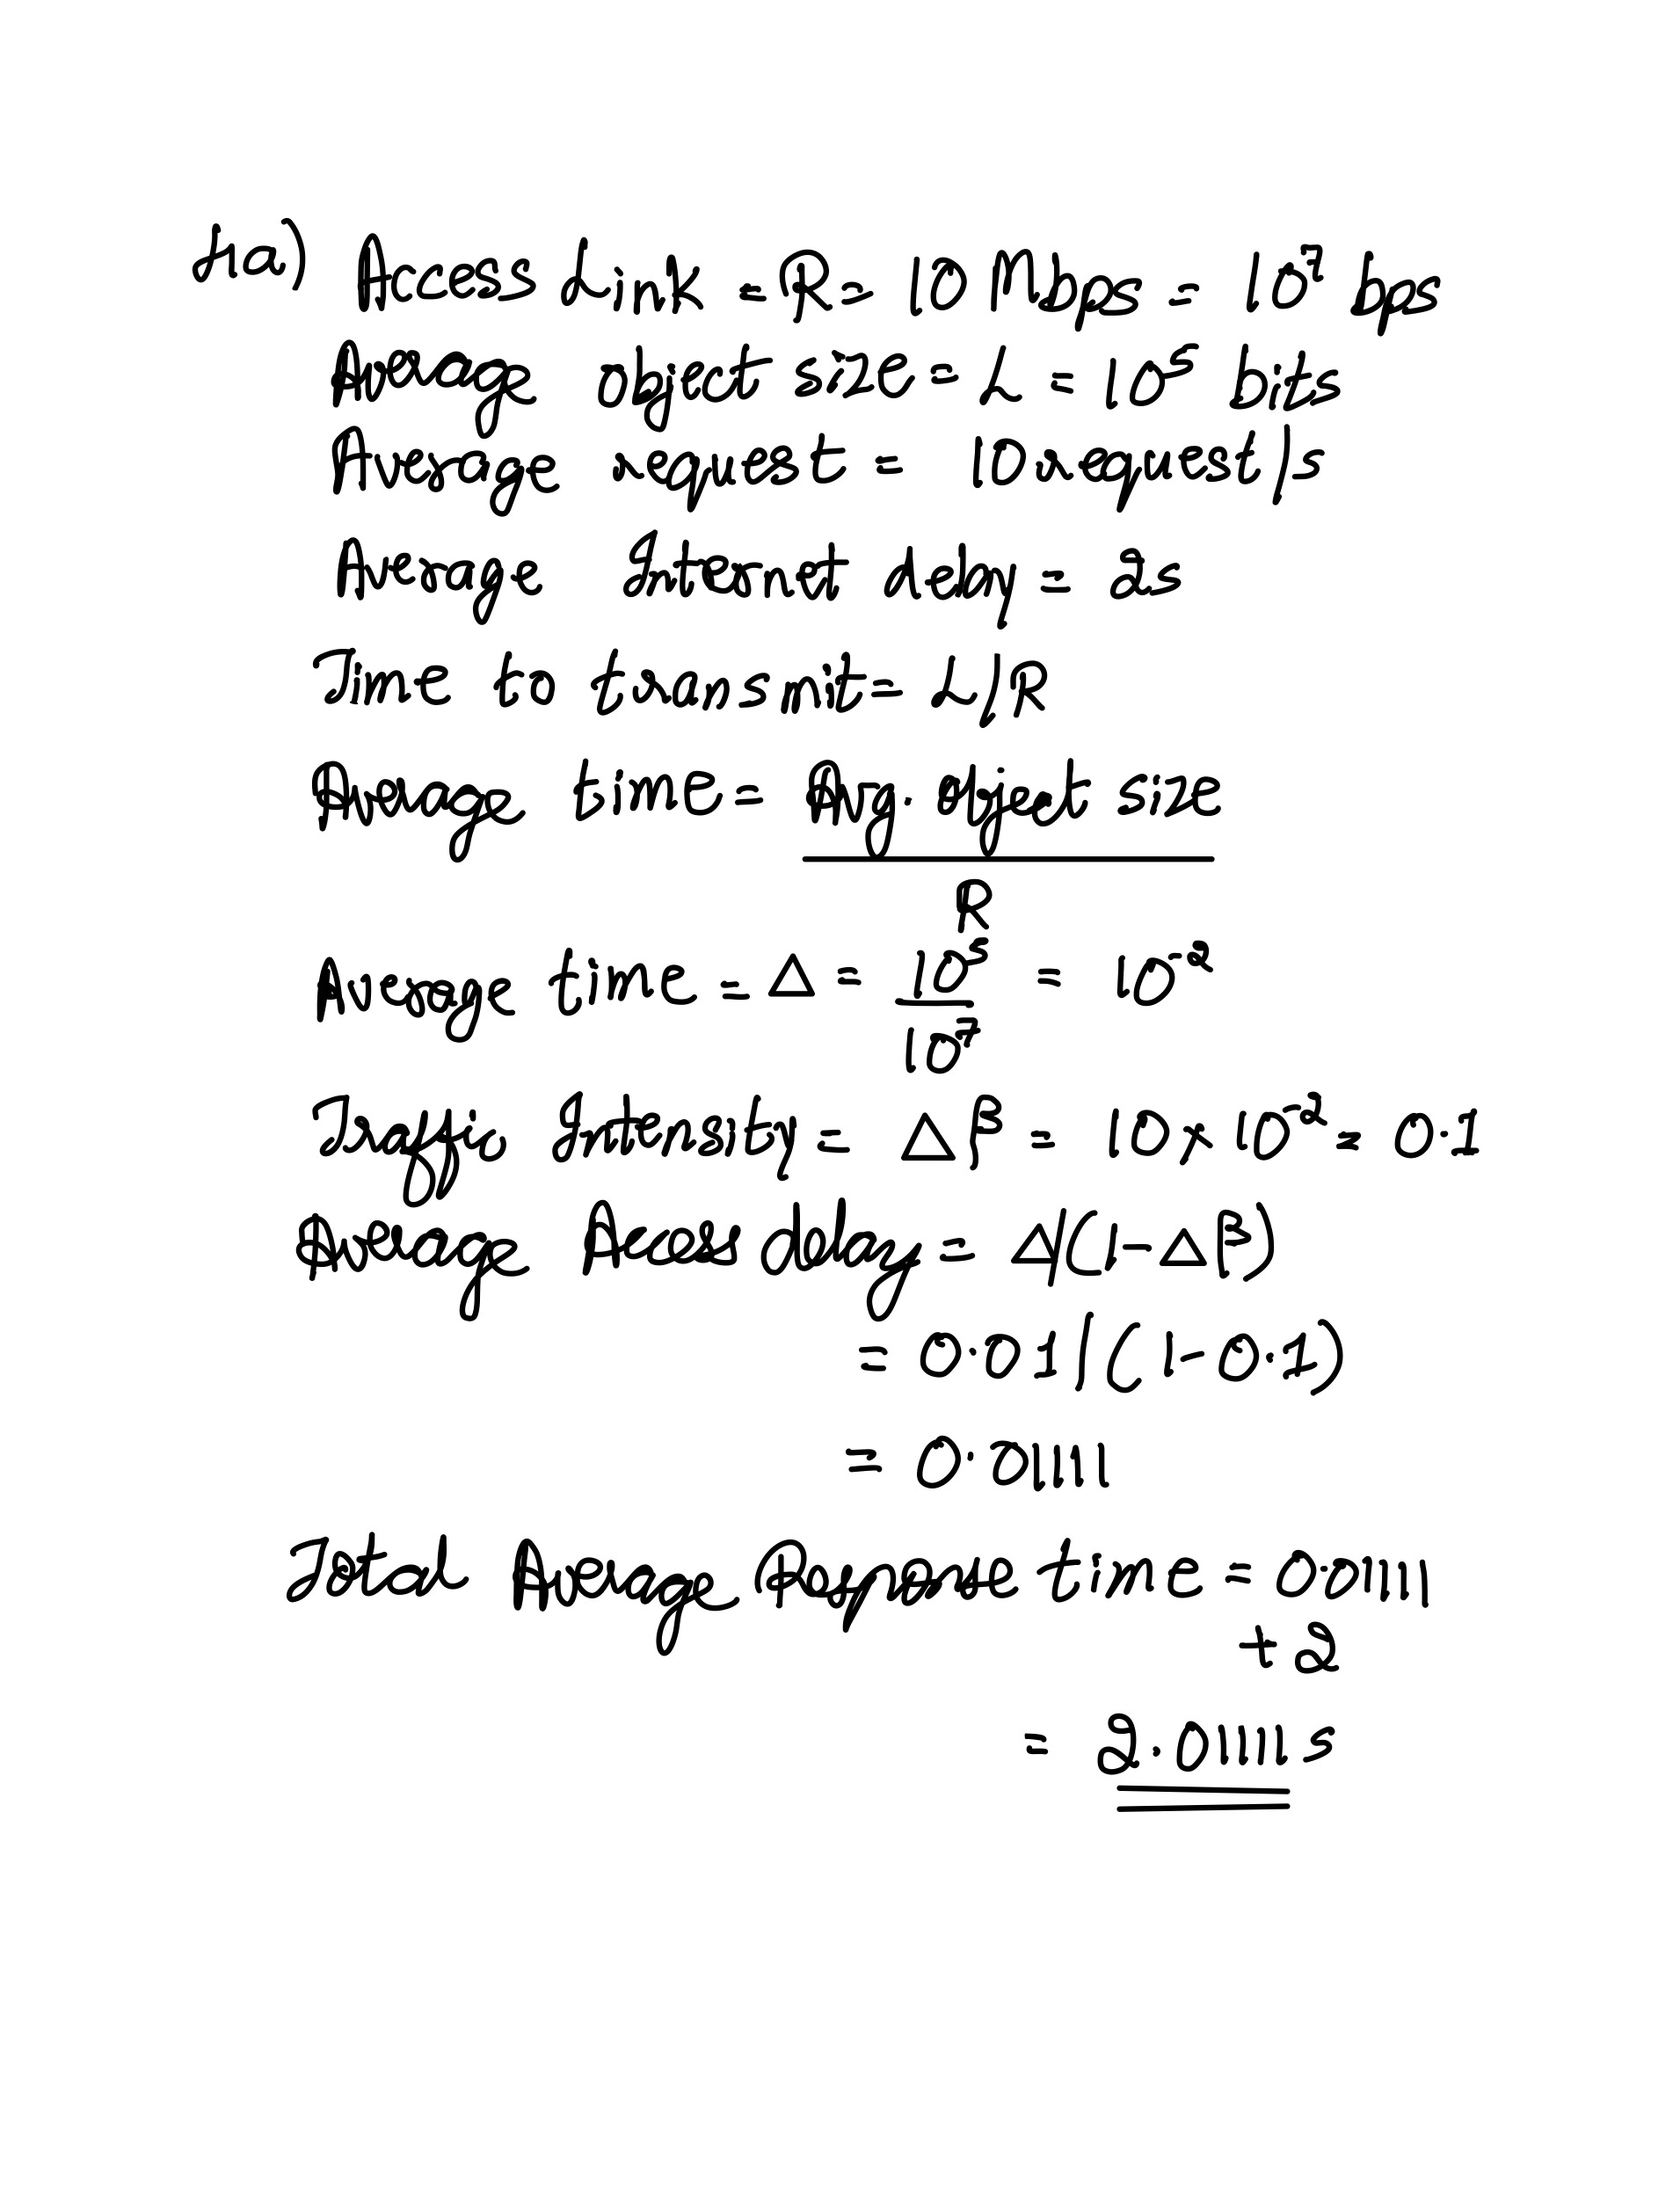 4a) Access Link = R = 10 Mbps = 10⁷ bps
Average object size = L = 10⁵ bits
Average request = 10 request/s
Average Internet delay = 2s
Time to transmit = L/R
Average time = Avg. object size
R
Average time = Δ = 10⁵ / 10⁷ = 10⁻²
Traffic Intensity = Δβ = 10 × 10⁻² = 0.1
Average Access delay = Δ/(1-Δβ)
= 0.01/(1-0.1)
= 0.01111
Total Average Response time = 0.01111
+2
= 2.01111 s